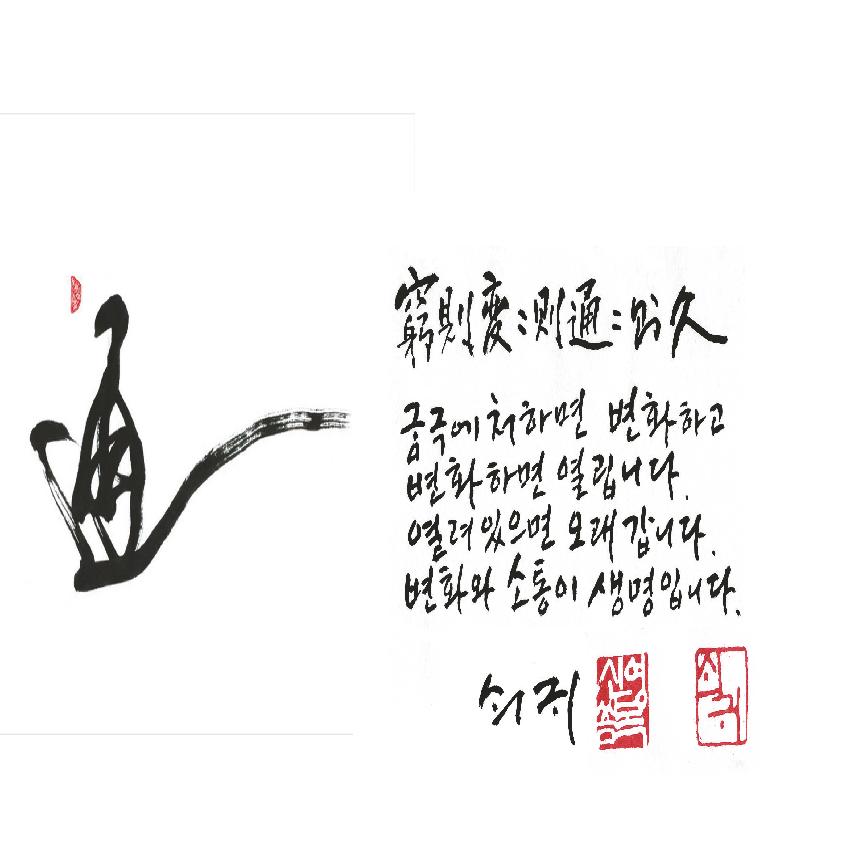 通
窮則變:則通:則久
궁극에 처하면 변화하고
변화하면 열립니다.
열려있으면 오래 갑니다.
변화와 소통이 생명입니다.
쇠귀
쇠귀